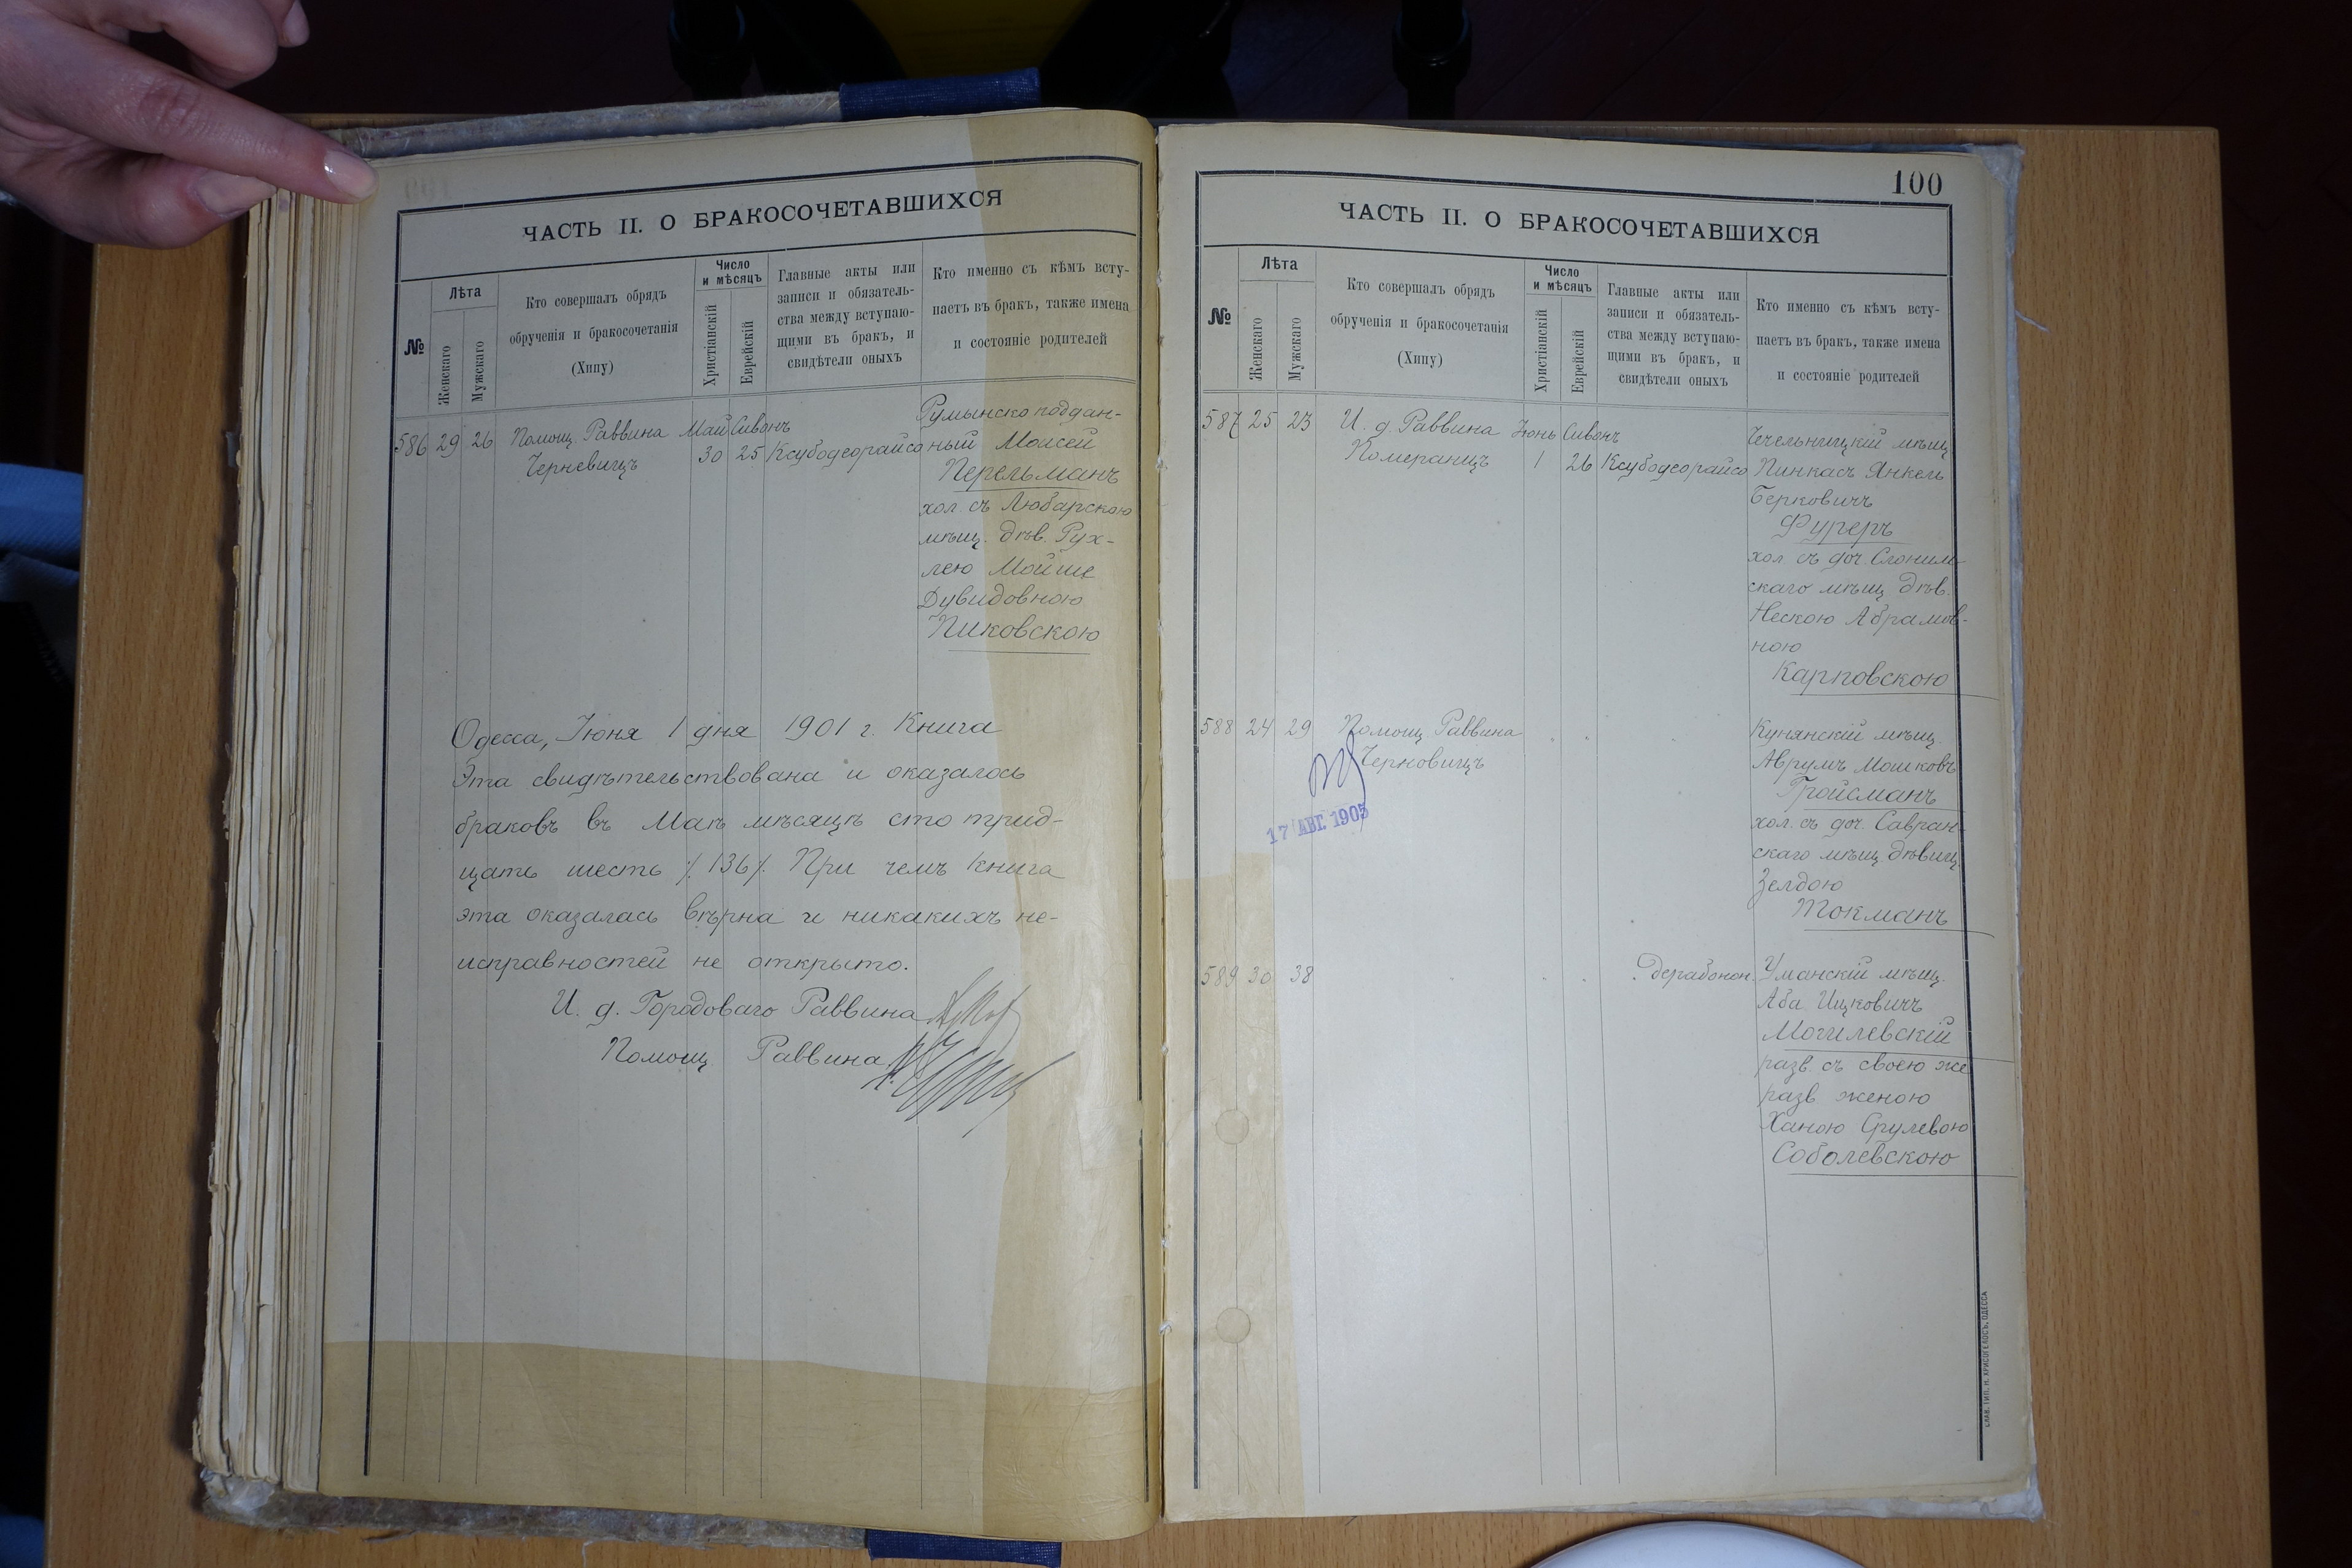 ЧАСТЬ II. О БРАКОСОЧЕТАВШИХСЯ
№
Лѣта
Женскаго
Мужскаго
Кто совершалъ обрядъ
обрученія и бракосочетанія
(Хипу)
Число
и мѣсяцъ
Христіанскій
Еврейскій
Главные акты или
записи и обязатель-
ства между вступаю-
щими въ бракъ, и
свидѣтели оныхъ
Кто именно съ кѣмъ всту-
паетъ въ бракъ, также имена
и состояніе родителей
586 29 26
Помощ. Раввина
Черневицъ
Май Сивонъ
30 25 Ксубодеорайсо
Румынско поддан-
ный Моисей
Перельманъ
хол. съ Любарскою
мѣщ. дѣв. Рух-
лею Мойше
Дувидовною
Пиковскою
Одесса, Іюня 1 дня 1901 г. Книга
Эта свидѣтельствована и оказалось
браковъ въ Маѣ мѣсяцѣ сто трид-
цать шесть /.136/. При чемъ книга
эта оказалась вѣрна и никакихъ не-
исправностей не открыто.
И. д. Городоваго Раввина
Помощ Раввина
100
ЧАСТЬ II. О БРАКОСОЧЕТАВШИХСЯ
№
Лѣта
Женскаго
Мужскаго
Кто совершалъ обрядъ
обрученія и бракосочетанія
(Хипу)
Число
и мѣсяцъ
Христіанскій
Еврейскій
Главные акты или
записи и обязатель-
ства между вступаю-
щими въ бракъ, и
свидѣтели оныхъ
Кто именно съ кѣмъ всту-
паетъ въ бракъ, также имена
и состояніе родителей
587 25 23
И. д. Раввина
Померанцъ
Іюнь Сивонъ
1 26 Ксубодеорайсо
Чечельницкій мѣщ
Пинкасъ Янкель
Берковичъ
Фуреръ
хол съ доч. Слоним-
скаго мѣщ дѣв.
Нескою Абрамов-
ною
Карповскою
588 24 29
Помощ Раввина
Черновицъ
17 АВГ. 1903
Кунянскій мѣщ.
Аврумъ Мошковъ
Гройсманъ
хол. съ доч. Савран-
скаго мѣщ дѣвиц
Зелдою
Токманъ
589 30 38
дерабонон.
Уманскій мѣщ.
Аба Ицковичъ
Могилевскій
разв. съ своею же
разв женою
Ханою Срулевою
Соболевскою
СЛАВ. ТИП. Н. ХРИСОГЕЛОСЪ, ОДЕССА